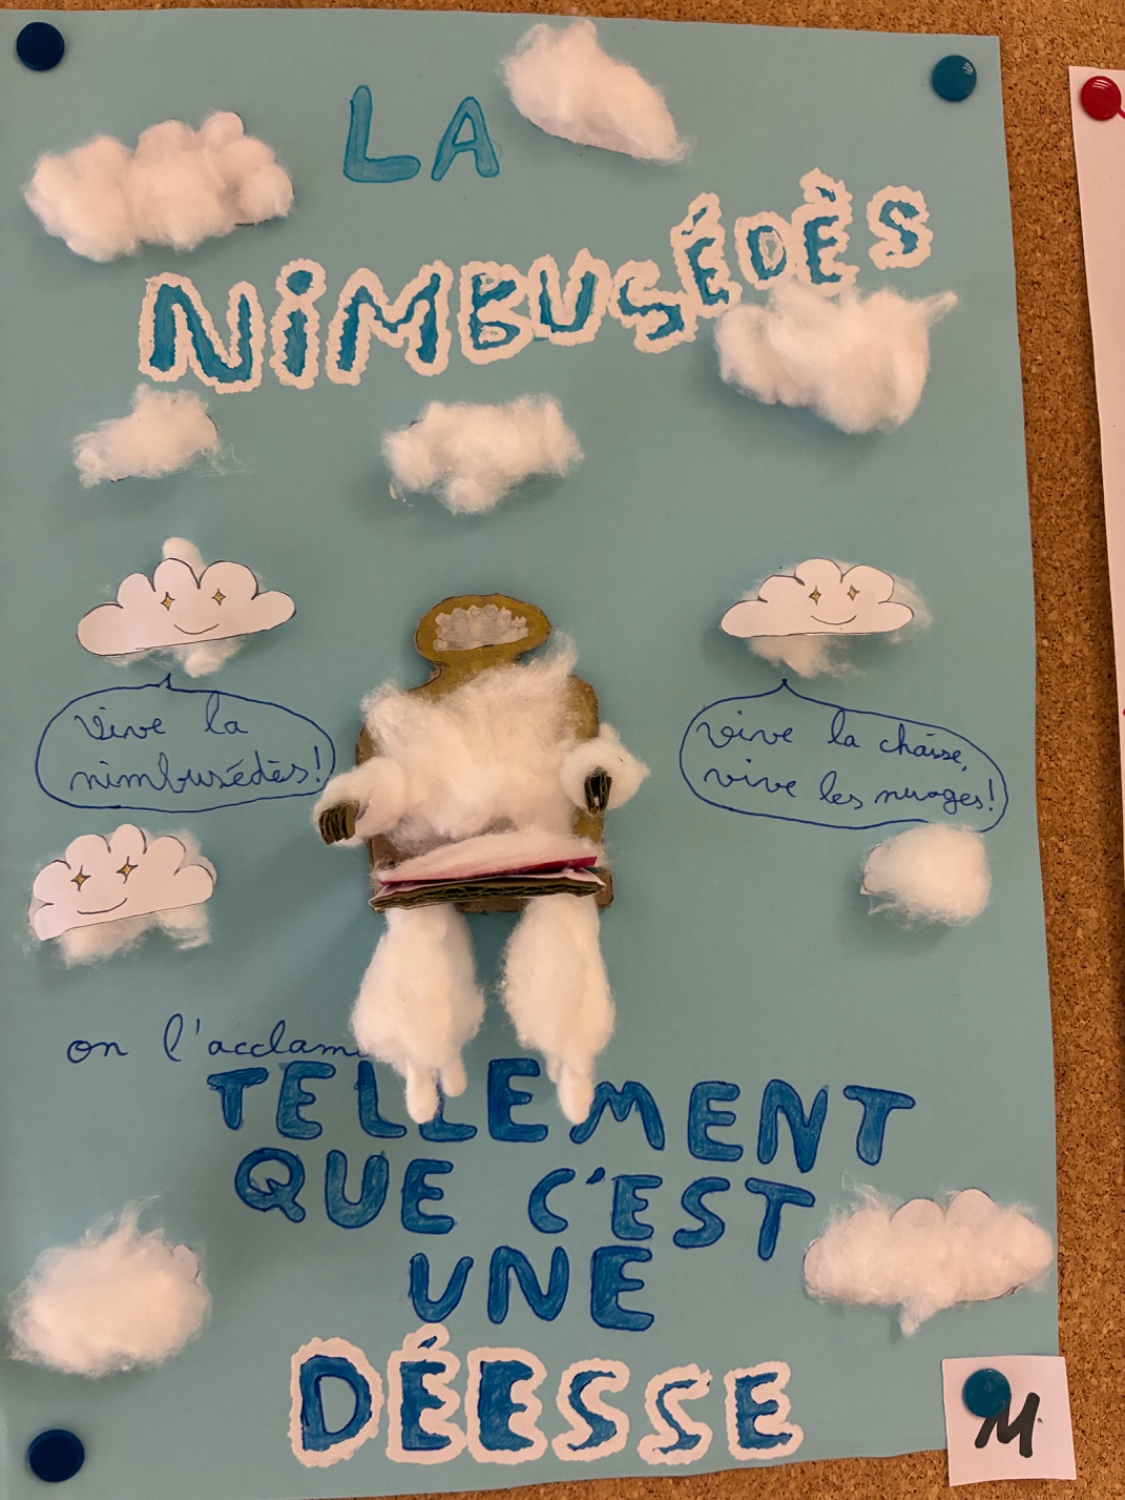 LA
NiMBUSÉDÈS
Vive la
nimbusédès!
vive la chaise,
vive les nuages!
on l'acclam
TELLEMENT
QUE C'EST
UNE
DÉESSE
M